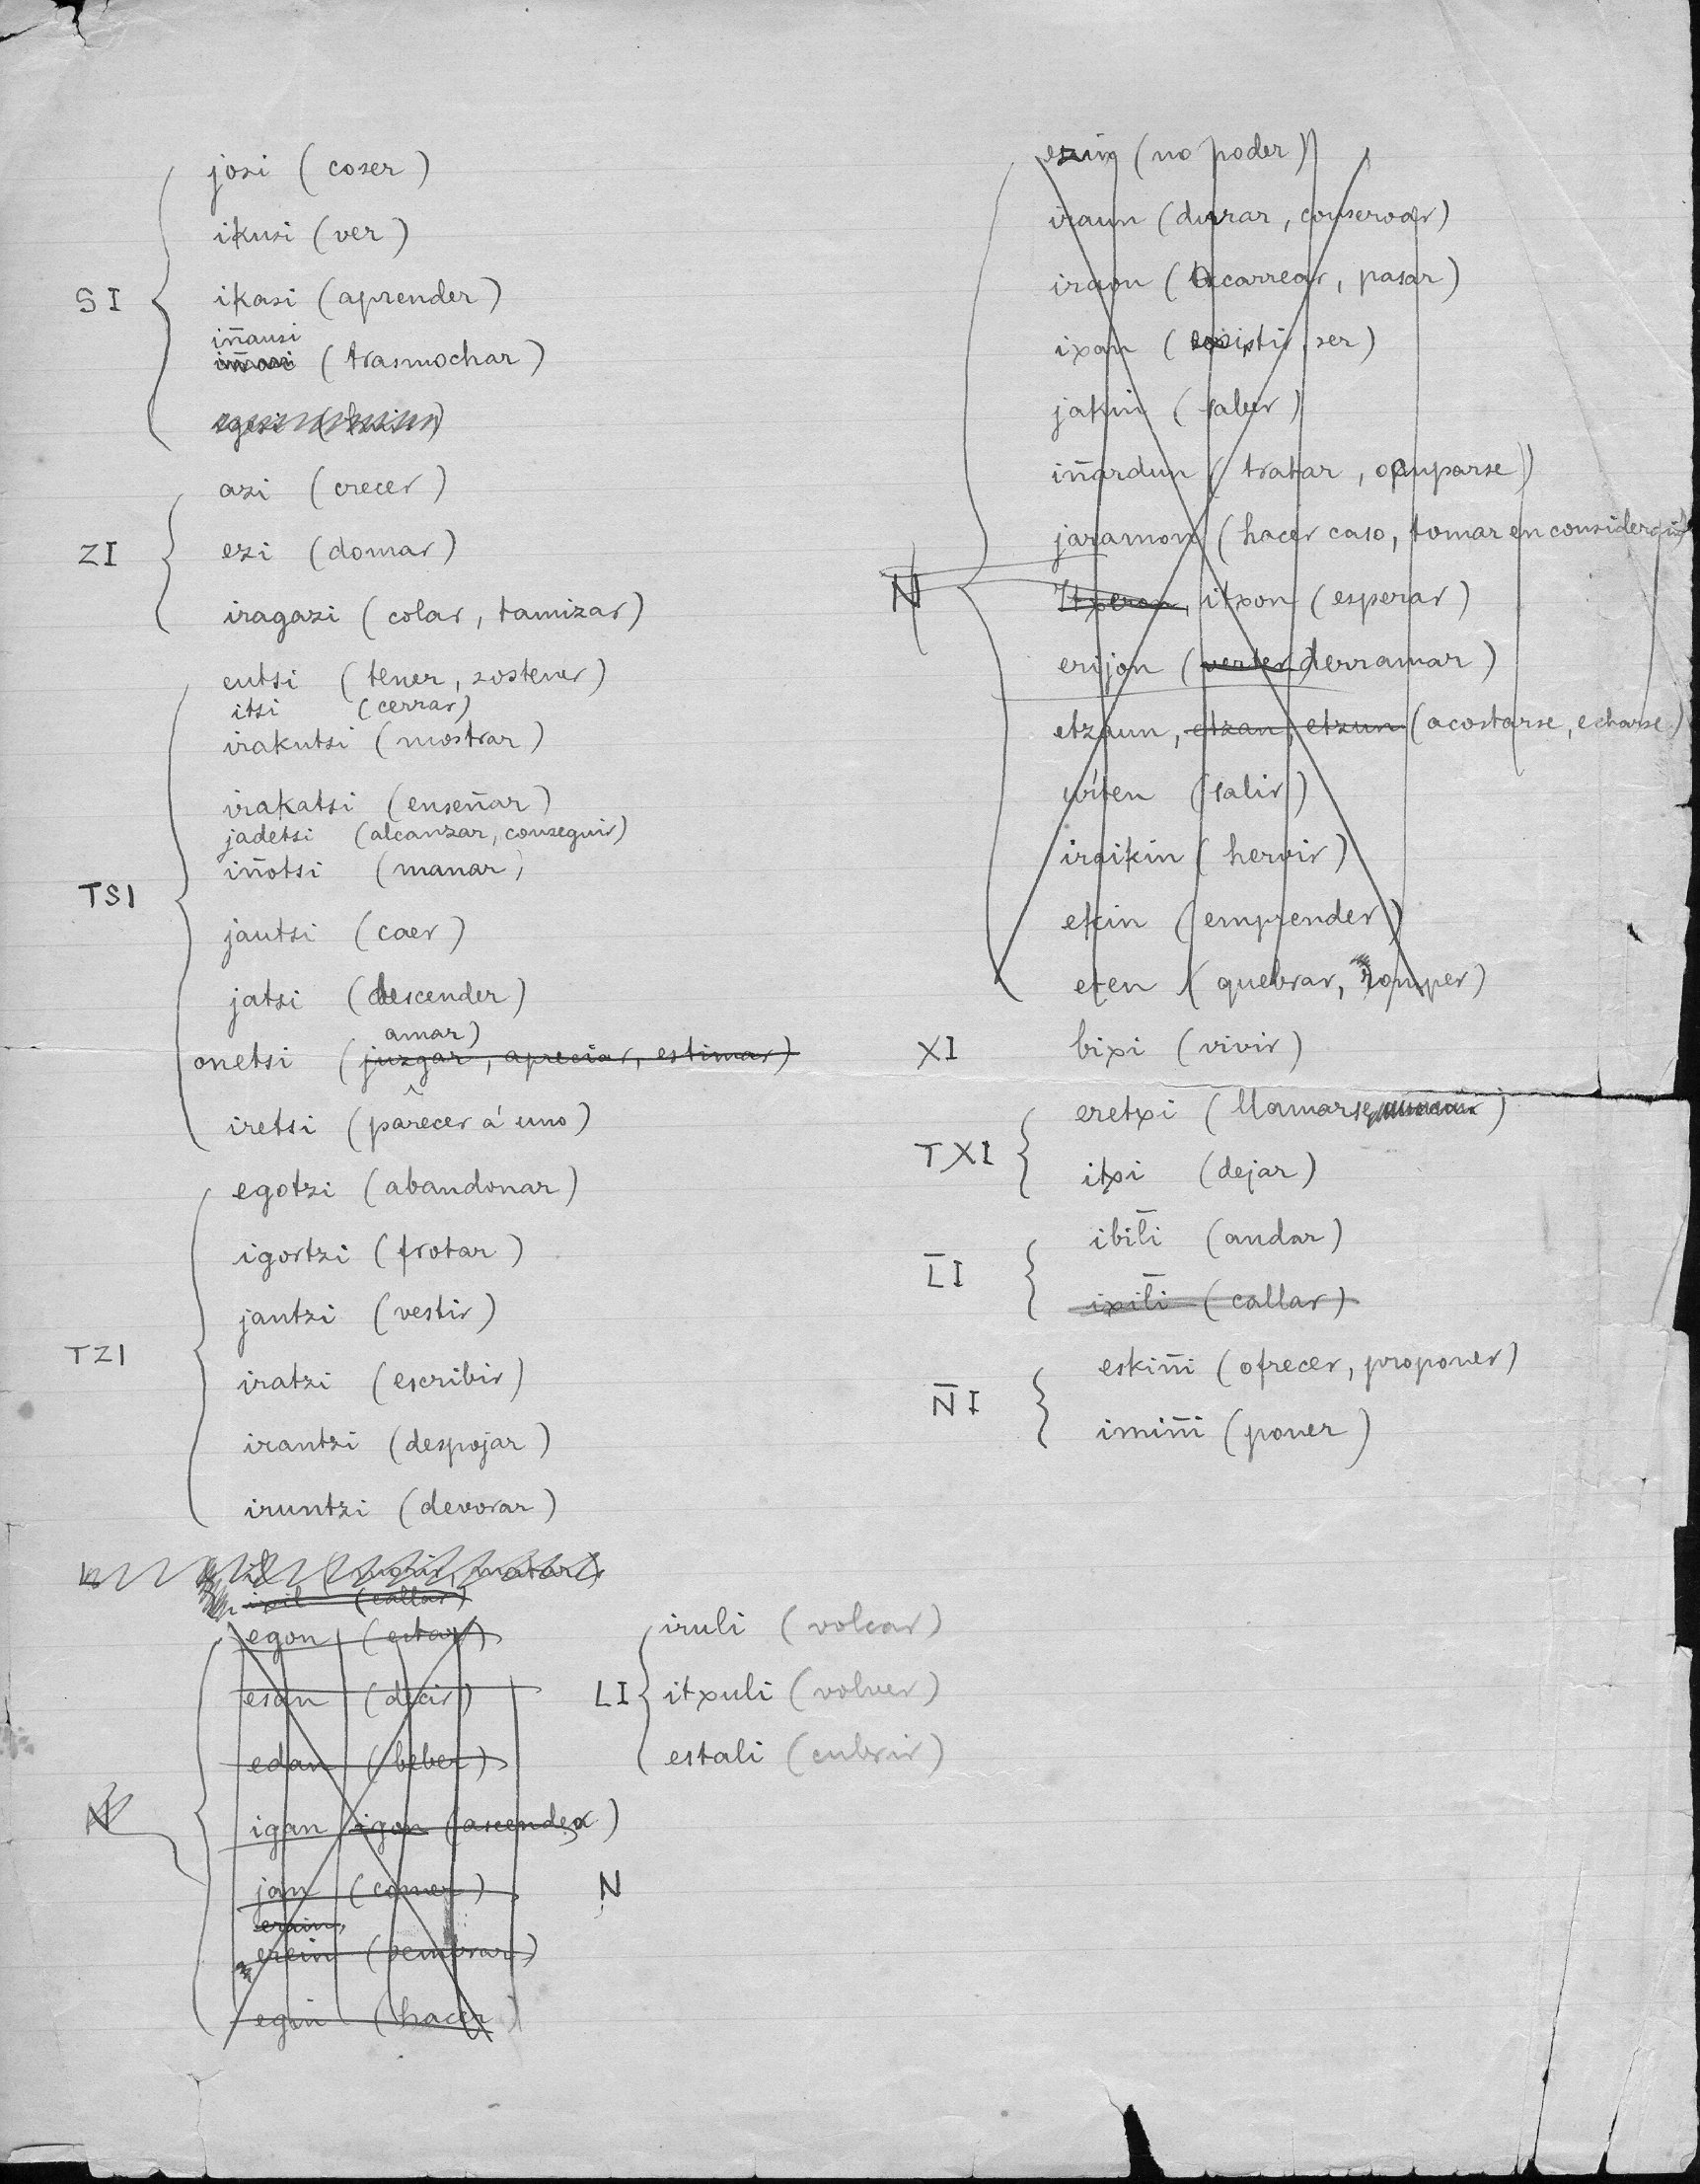 josi (coser)
ikusi (ver)
SI
ikasi (aprender)
iñausi
iñasi (trasmochar)
azi (crecer)
ZI
ezi (domar)
iragazi (colar, tamizar)
eutsi (tener, sostener)
itsi (cerrar)
irakutsi (mostrar)
irakatsi (enseñar)
jadetsi (alcanzar, conseguir)
iñotsi (manar)
TSI
jautsi (caer)
jatsi (descender)
amar)
onetsi (juzgar, apreciar, estimar)
iretsi (parecer á uno)
egotzi (abandonar)
igortzi (frotar)
jantzi (vestir)
TZI
iratzi (escribir)
irantzi (despojar)
iruntzi (devorar)
il (morir, matar)
ixil (callar)
egon (estar)
esan (decir)
edan (beber)
N
igan igon (ascender)
jan (comer)
erain,
erein (sembrar)
egin (hacer)
iruli (volcar)
LI
itxuli (volver)
estali (cubrir)
N
ezin (no poder)
iraun (durar, conservar)
iraon (acarrear, pasar)
ixan (existir, ser)
jakin (saber)
iñardun (tratar, ocuparse)
jaramon (hacer caso, tomar en consideración)
N
Itxeron, itxon (esperar)
erijon (verter) derramar)
etzaun, etzan, etzun (acostarse, echarse)
urten (salir)
iraikin (hervir)
ekin (emprender)
eten (quebrar, romper)
XI
bixi (vivir)
eretxi (llamarse)
TXI
itxi (dejar)
ibil̄i (andar)
L̄I
ixil̄i (callar)
eskiñi (ofrecer, proponer)
N̄I
imiñi (poner)